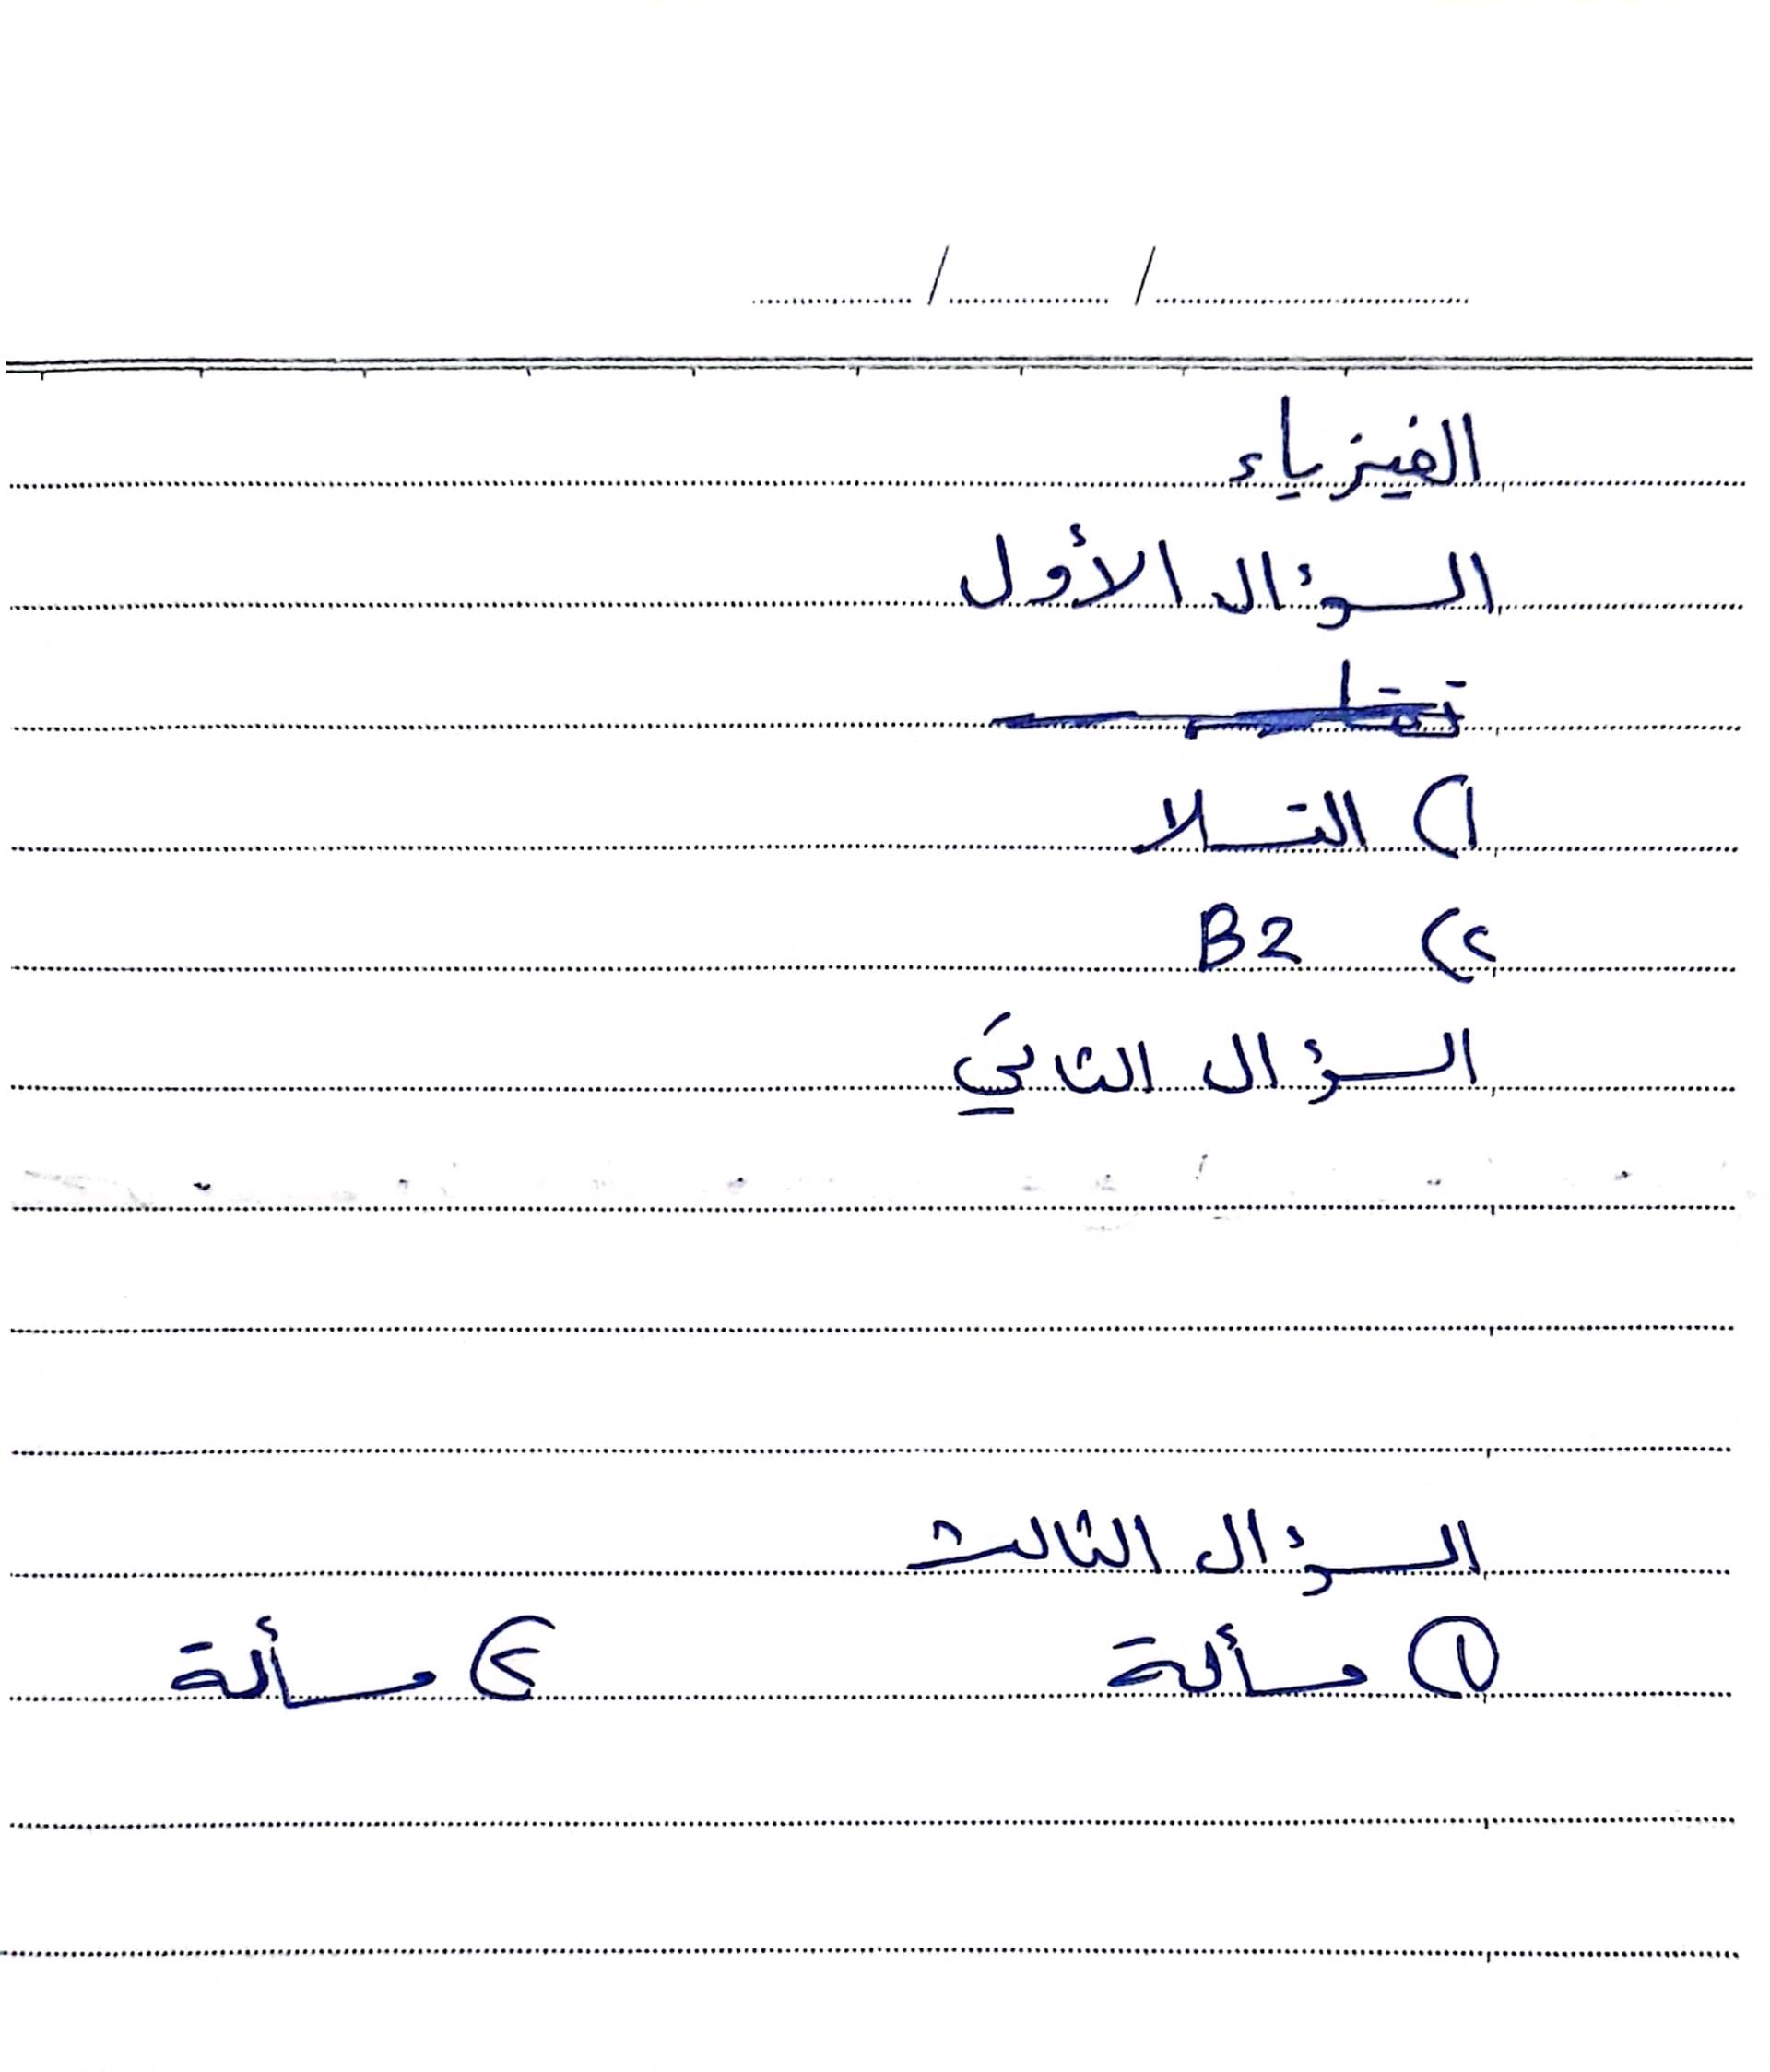 الفيزياء
السؤال الأول
١) التسلا
٢) B2
السؤال الثاني
السؤال الثالث
① مسألة ② مسألة